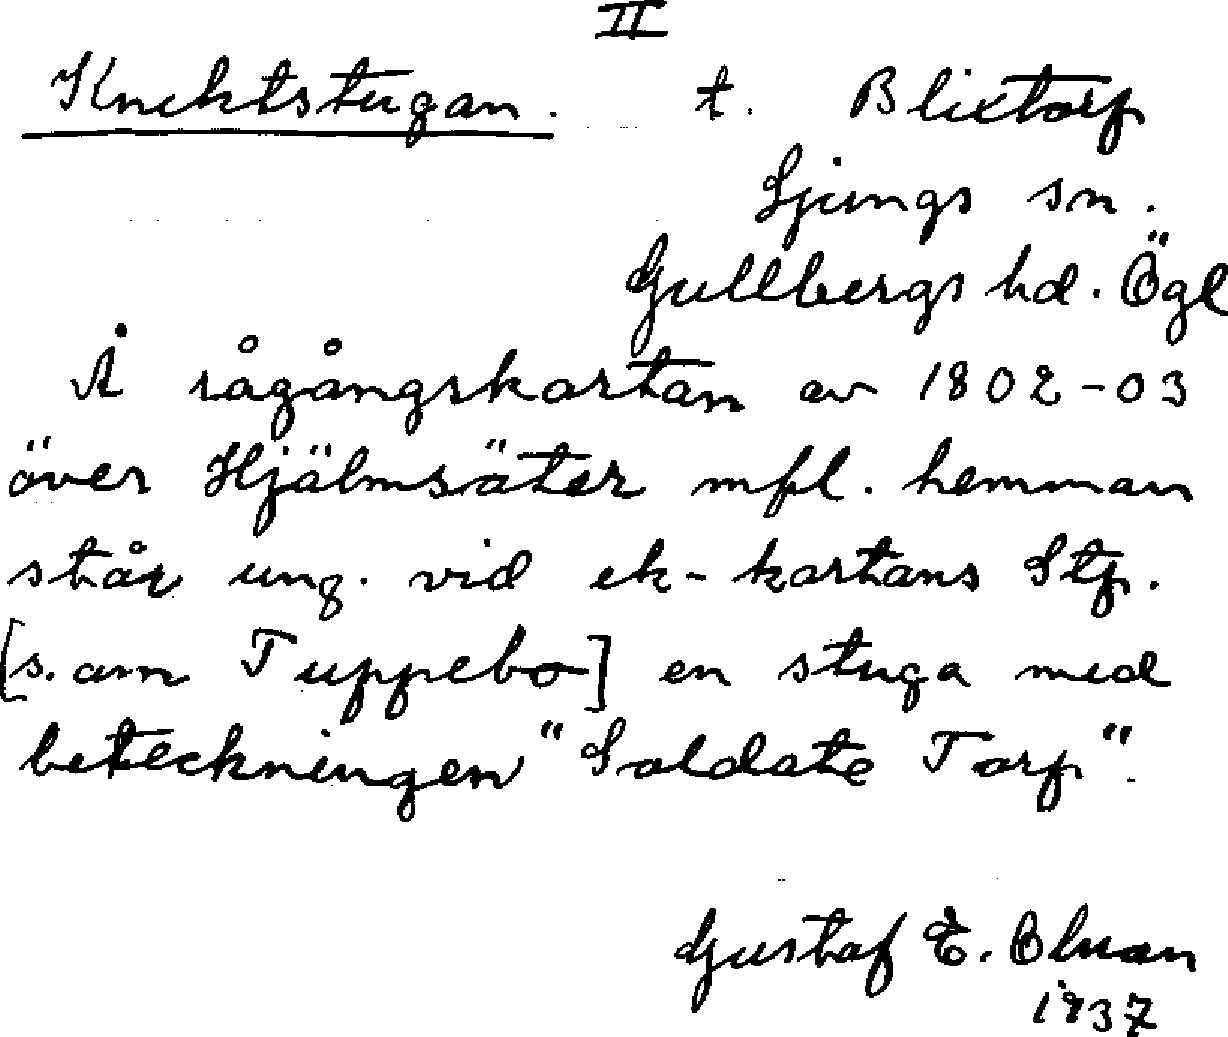 II
Knektstugan. t. Blixtorp
Ljungs sn.
Gullbergs hd. Ögl
Å rågångskartan av 1802-03
över Hjälmsäter mfl. hemman
står ung. vid ek-kartans Stp.
[s. om Tuppebo] en stuga med
beteckningen "Soldate Torp".
Gustaf E. Blman
1937